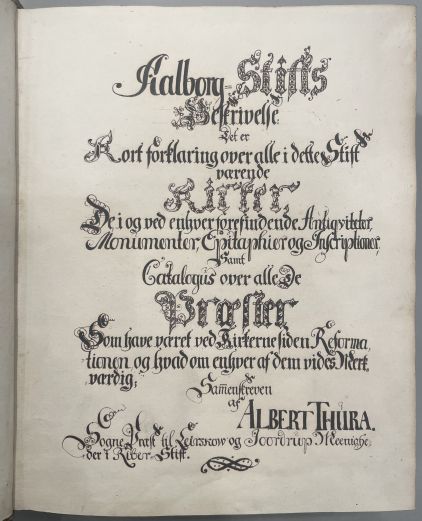 Aalborg-Stifts
Beskrivelse.
Det er
Kort forklaring over alle i dette Stift
værende
Kirker,
De i og ved enhver forefindende Antiqviteter,
Monumenter, Epitaphier og Inscriptioner,
Samt
Catalogus over alle De
Præster
Som have været ved Kirkerne siden Reforma
tionen, og hvad om enhver af dem vides Merk
værdig;
Sammenskreven
af
ALBERT THURA.
Sogne Præst til Leirskow og Joordrup Meenighe-
der i Riber-Stift.